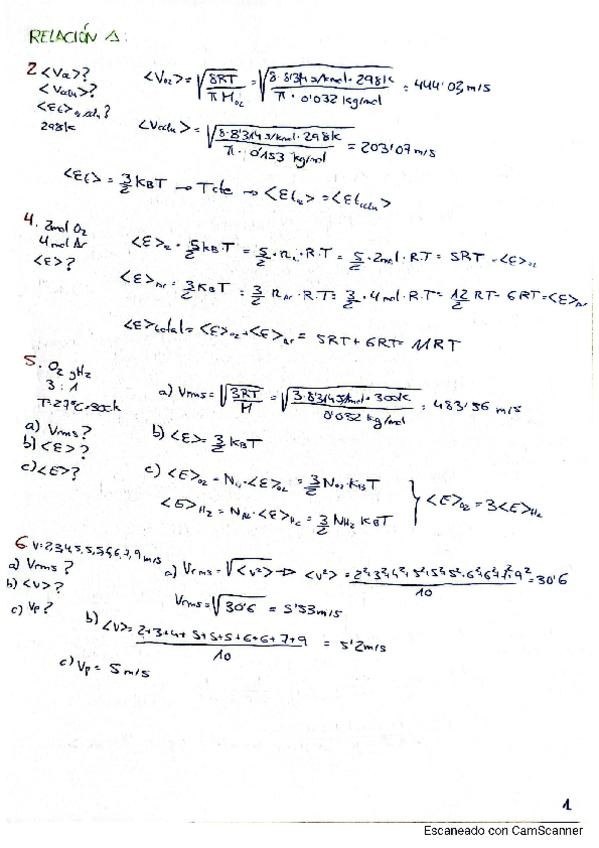 RELACIÓN 1:
2 <Vcl>?
<Vccl4>?
298k
<V_O2> = √(8RT / π M_O2) = √(8·8'314 J/kmol·298k / π·0'032 kg/mol) = 444'03 m/s
<Vccl4> = √(8·8'314 J/kmol·298k / π·0'153 kg/mol) = 203'07 m/s
= 3/2 K_B T → T cte →
4. 2mol O2
4mol Ar
<E>?
= 5/2 K_B T = 5/2 · n · R.T = 5/2 · 2mol · R.T = 5RT = <E>_O2
<E>_Ar = 3/2 K_B T = 3/2 n_Ar · R.T = 3/2 · 4mol · R.T = 12/2 RT = 6RT = <E>_Ar
<E>total = <E>_O2 + <E>_Ar = 5RT + 6RT = 11RT
5. O2 y H2
3 : 1
T=27ºC=300k
a) Vrms?
b) <E>?
c) <E>?
a) Vrms = √(3RT / M) = √(3·8'314 J/kmol·300k / 0'032 kg/mol) = 483'56 m/s
b) <E> = 3/2 K_B T
c) <E>_O2 = N · <E>_O2 = 3/2 N_O2 · K_B T
<E>_H2 = N · <E>_H2 = 3/2 N_H2 K_B T
<E>_O2 = 3<E>_H2
6. V: 2,3,4,5,5,5,6,6,7,9 m/s
a) Vrms?
b) <V>?
c) Vp?
a) Vrms = √<V²> → <V²> = 2²+3²+4²+5²+5²+5²+6²+6²+7²+9² / 10 = 30'6
Vrms = √30'6 = 5'53m/s
b) <V> = 2+3+4+5+5+5+6+6+7+9 / 10 = 5'2m/s
c) Vp = 5m/s
1
Escaneado con CamScanner